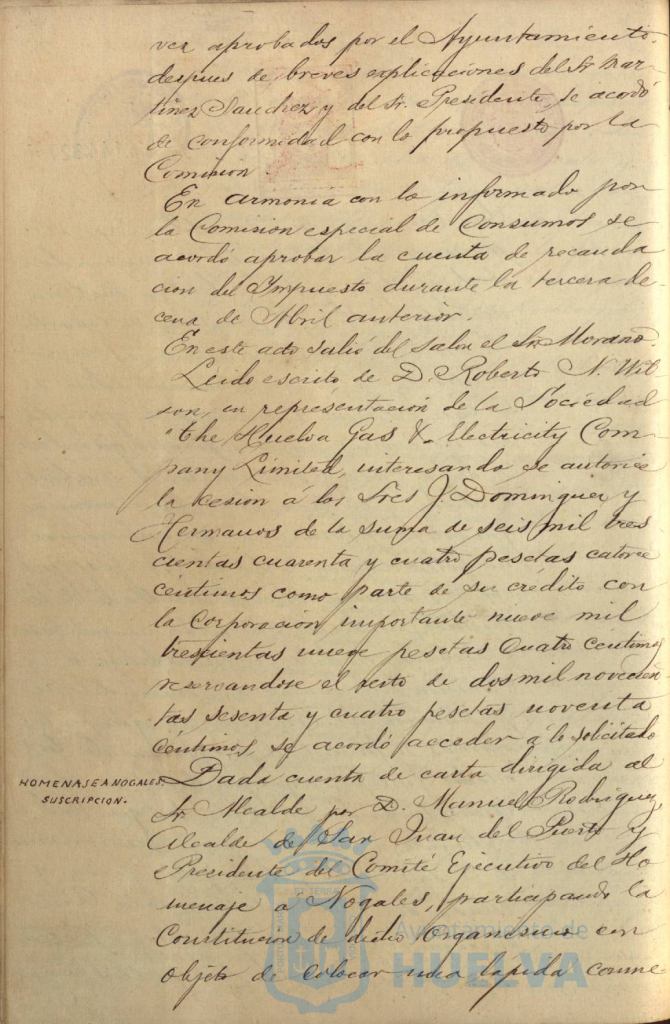 ver aprobados por el Ayuntamiento,
despues de breves explicaciones del Sr Mar-
tinez Sanchez y del Sr. Presidente, se acordó
de conformidad con lo propuesto por la
Comision.
En armonia con lo informado por
la Comision especial de Consumos se
acordó aprobar la cuenta de recauda
cion del Impuesto durante la tercera de-
cena de Abril anterior.
En este acto salió del salon el Sr. Morano.
Leido escrito de D. Roberto N. Wil
son, en representación de la Sociedad
"The Huelva Gas & Electricity Com-
pany Limited, interesando se autorice
la cesion á los Sres J. Dominguez y
Hermanos de la suma de seis mil tres
cientas cuarenta y cuatro pesetas catorce
céntimos como parte de su crédito con
la Corporación importante nueve mil
trescientas nueve pesetas cuatro centimos
reservandose el resto de dos mil novecien
tas sesenta y cuatro pesetas noventa
céntimos, se acordó acceder á lo solicitado
HOMENAJE A NOGALES.
SUSCRIPCION.
Dada cuenta de carta dirigida al
Sr. Alcalde por D. Manuel Rodriguez,
Alcalde de San Juan del Puerto y
Presidente del Comité Ejecutivo del Ho
menaje á Nogales, participando la
Constitucion de dicho Organismo con
objeto de colocar una lápida conme
Ayuntamiento de
HUELVA